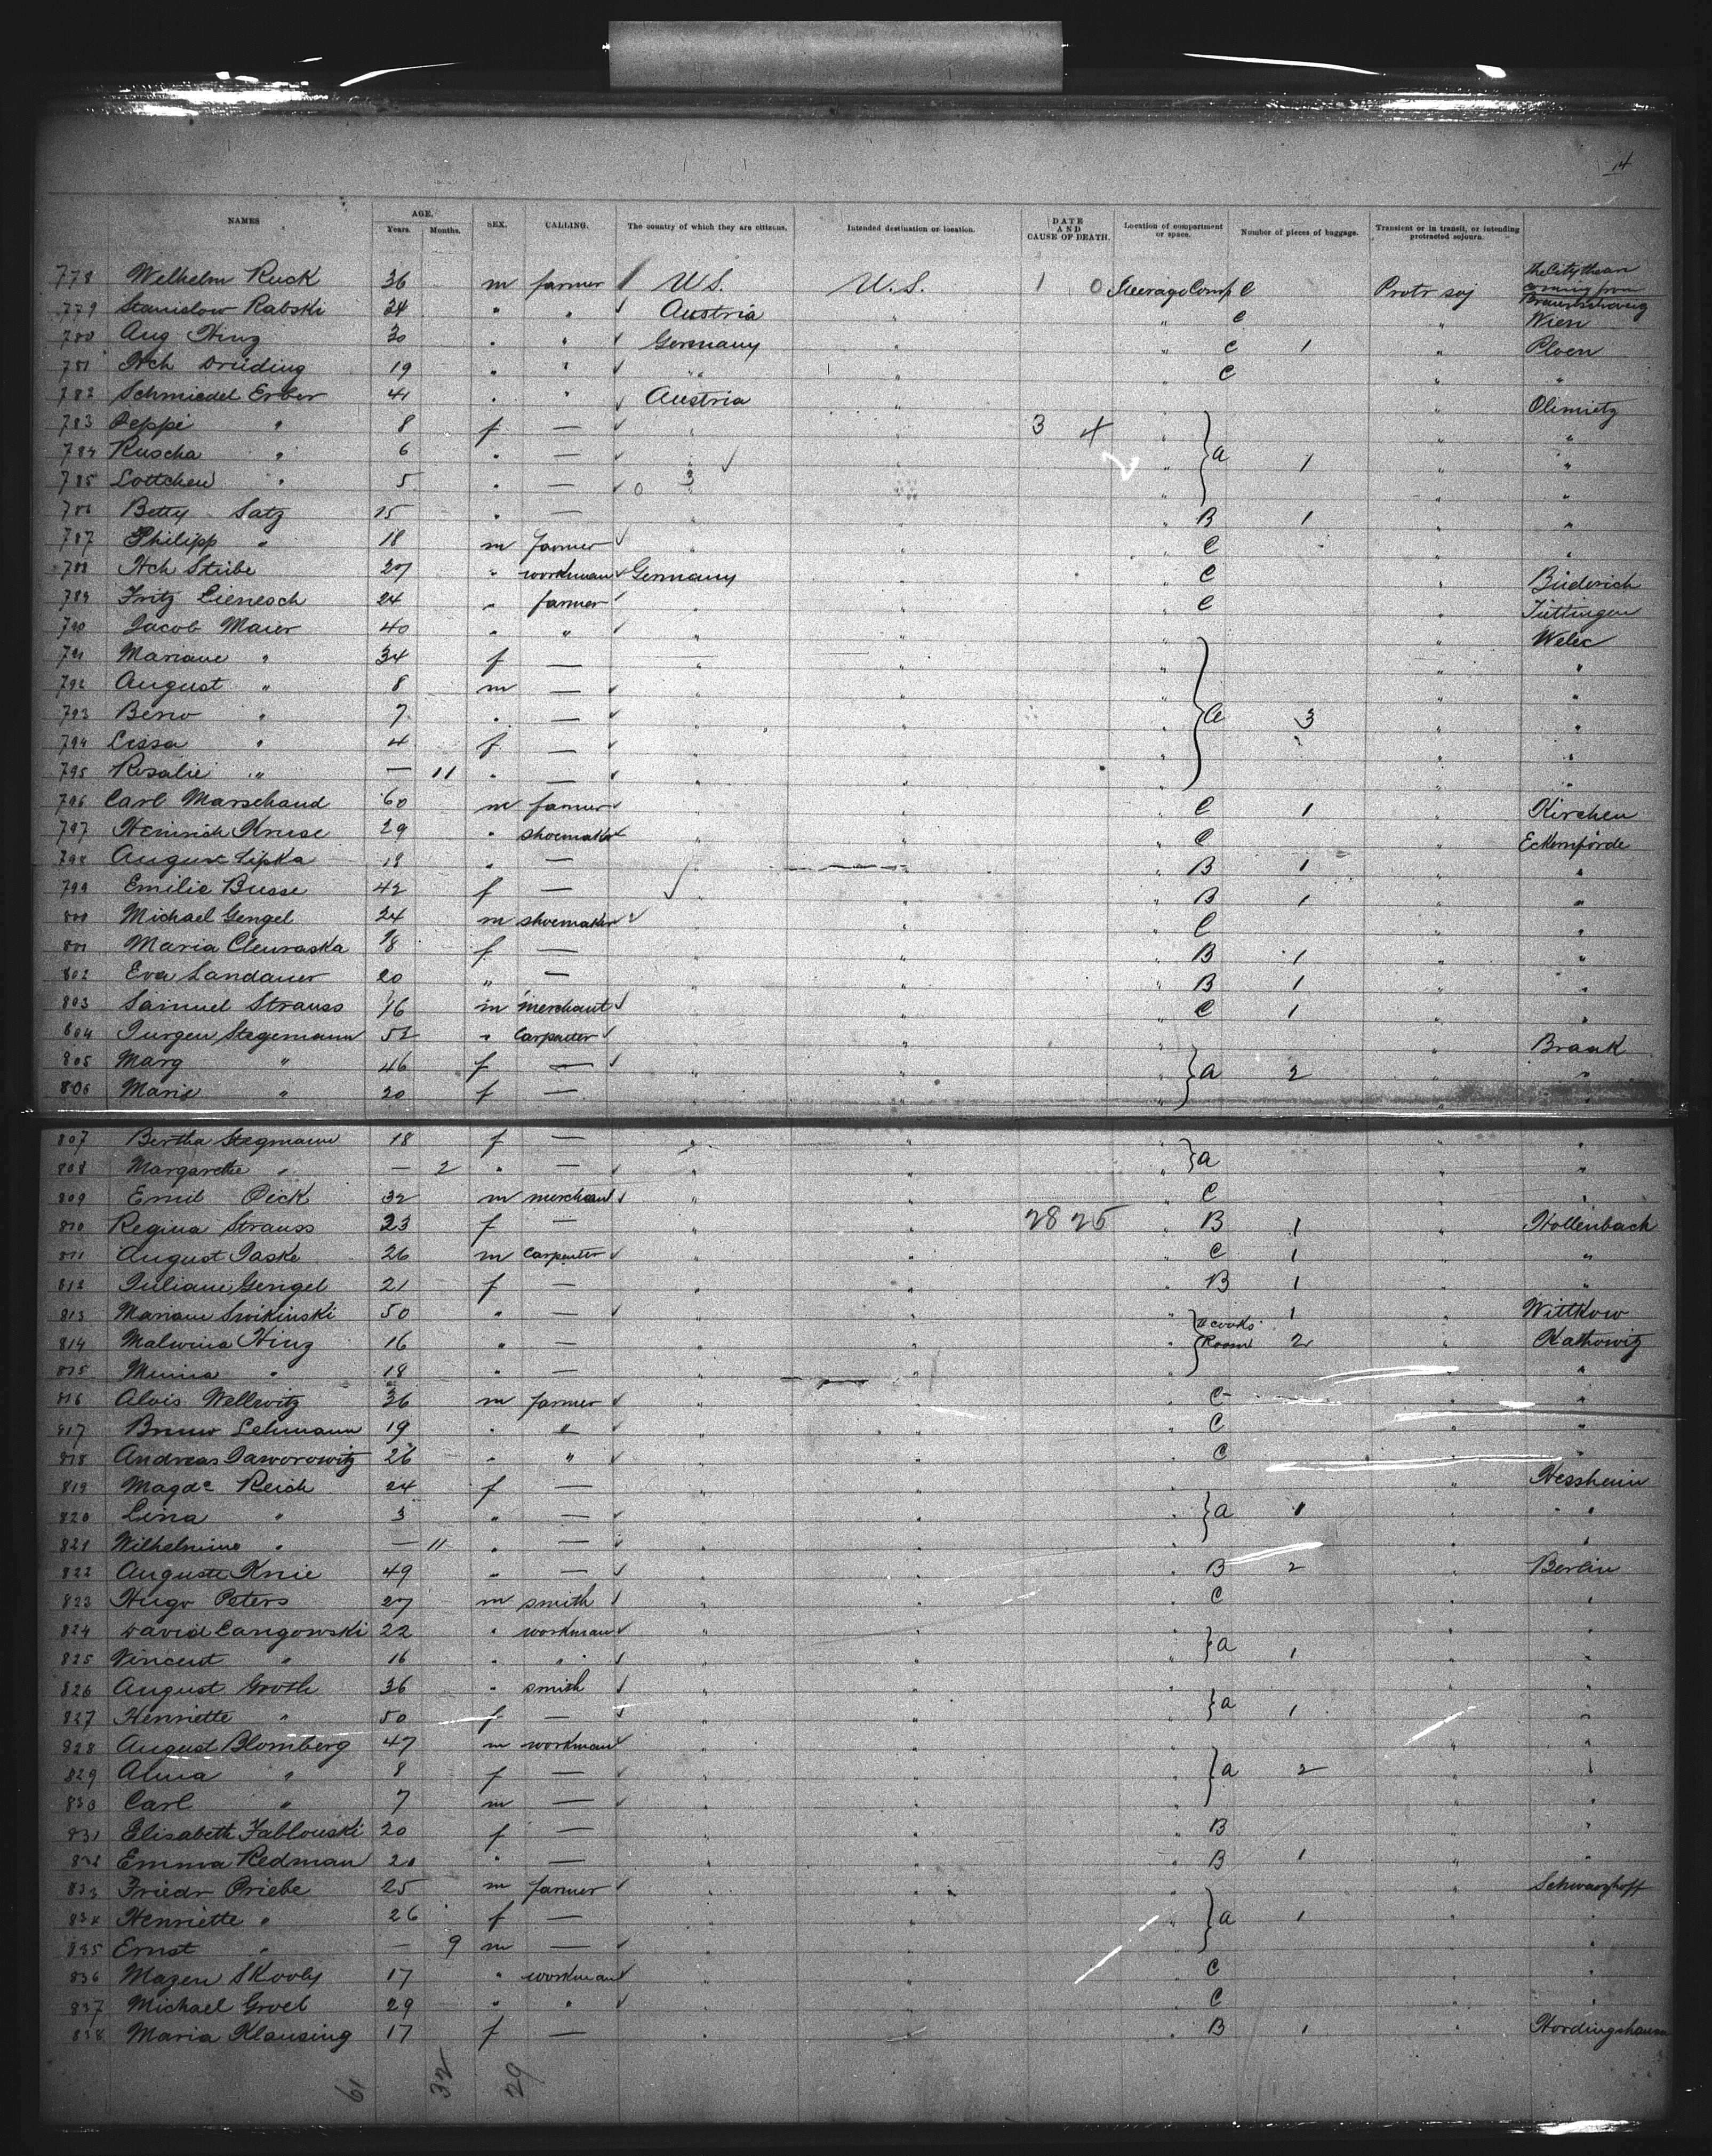 14
NAMES AGE. Years. Months. SEX. CALLING. The country of which they are citizens. Intended destination or location. DATE AND CAUSE OF DEATH. Location of compartment or space. Number of pieces of baggage. Transient or in transit, or intending protracted sojourn.
the City thean coming from
778 Welhelm Ruck 36 m farmer U S. U. S. 1 0 Steerage Comp C Protr soj Braunschweig
779 Stanislow Rabski 24 " " Austria " " C " Wien
780 Aug Hinz 30 " " Germany " " C 1 " Ploen
781 Hch Drüding 19 " " " " " C " "
782 Schmiedel Erber 41 " " Austria " " Olimietz
783 Peppi " 8 f — " " 3 4 " " "
784 Ruscha " 6 " — " " 2 " a 1 " "
785 Lottchen " 5 " — 0 3 " " " "
786 Betty Satz 15 " — " " " B 1 " "
787 Philipp " 18 m farmer " " " C " "
788 Hch Stribe 27 " workman Germany " " C " Büderich
789 Fritz Lienesch 24 " farmer " " " C " Tüttingen
790 Jacob Maier 40 " " " " " " Welec
791 Mariane " 34 f — " " " " "
792 August " 8 m — " " " " "
793 Beno " 7 " — " " " a 3 " "
794 Lissa " 4 f — " " " " "
795 Rosalie " — 11 " — " " " " "
796 Carl Marschand 60 m farmer " " " C 1 " Kirchen
797 Heinrich Kruse 29 " shoemaker " " " C " Eckernförde
798 August Lipka 18 " — " " " B 1 " "
799 Emilie Busse 42 f — " " " B 1 " "
800 Michael Gengel 24 m shoemaker " " " C " "
801 Maria 18 f — " " " B 1 " "
802 Eva Landauer 20 " — " " " B 1 " "
803 Samuel Strauss 16 m merchant " " " C 1 " "
804 Jurgen Stegemann 52 " carpenter " " " " Braak
805 Marg " 46 f — " " " a 2 " "
806 Marie " 20 f — " " " " "
807 Bertha Stegmann 18 f — " " " " "
808 Margarethe " — 2 " — " " " a " "
809 Emil Pick 32 m merchant " " " C " "
810 Regina Strauss 23 f — " " 28 25 " B 1 " Hollenbach
811 August Jaske 26 m carpenter " " " C 1 " "
812 Juliane Gengel 21 f — " " " B 1 " "
813 Mariane Swikinski 50 " — " " " 1 " Wittkow
814 Malwina Hinz 16 " — " " " cooks Room 2 " Kathowitz
815 Minna " 18 " — " " " " "
816 Alois Wellwitz 36 m farmer " " " C " "
817 Bruno Lehmann 19 " " " " " C " "
818 Andreas Jaworowitz 26 " " " " " C " "
819 Magde Reich 24 f — " " " " Hessheim
820 Lina " 3 " — " " " a 1 " "
821 Wilhelmine " — 11 " — " " " " "
822 Auguste Knie 49 " — " " " B 2 " Berlin
823 Hugo Peters 27 m smith " " " C " "
824 David Cangowski 22 " workman " " " " "
825 Vincent " 16 " " " " " a 1 " "
826 August Groth 36 " smith " " " " "
827 Henriette " 50 f — " " " a 1 " "
828 August Blomberg 47 m workman " " " " "
829 Alma " 8 f — " " " a 2 " "
830 Carl " 7 m — " " " " "
831 Elisabeth Jablonski 20 f — " " " B " "
832 Emma Redman 20 " — " " " B 1 " "
833 Friedr Priebe 25 m farmer " " " " Schwarzhoff
834 Henriette " 26 f — " " " a 1 " "
835 Ernst " — 9 m — " " " " "
836 Mazen Skooly 17 " workman " " " C " "
837 Michael Groel 29 " " " " " C " "
838 Maria Klausing 17 f — " " " B 1 " Hordinghausen
61 32 29